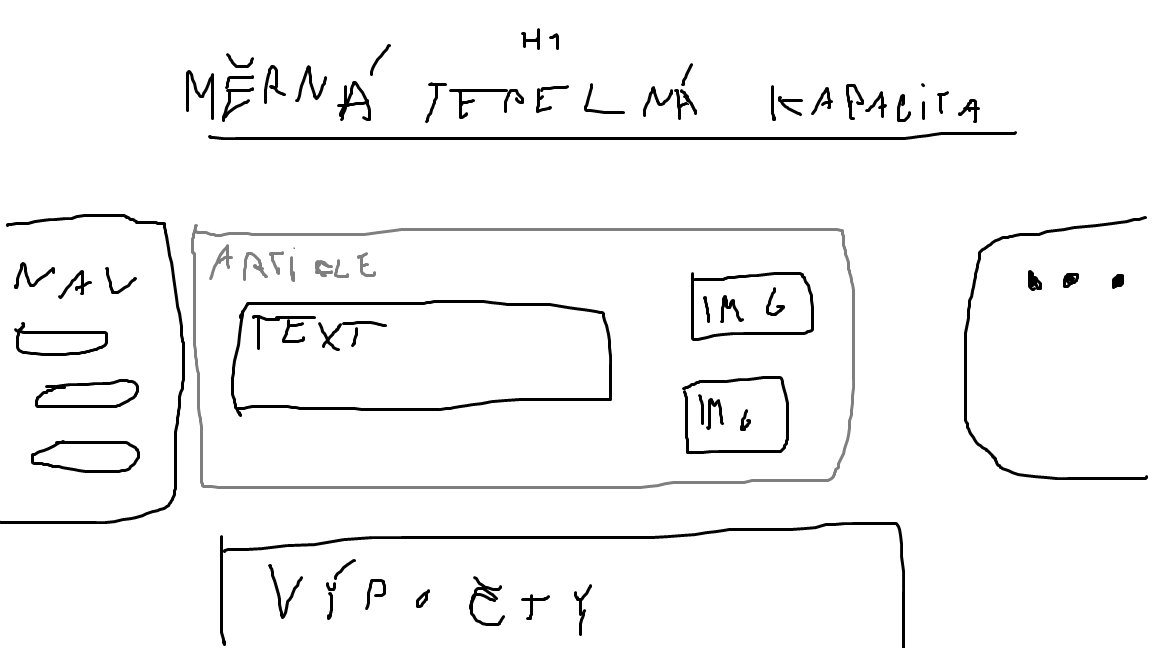 H1
MĚRNÁ TEPELNÁ KAPACITA
NAV
ARTICLE
TEXT
IMG
IMG
VÝPOČTY